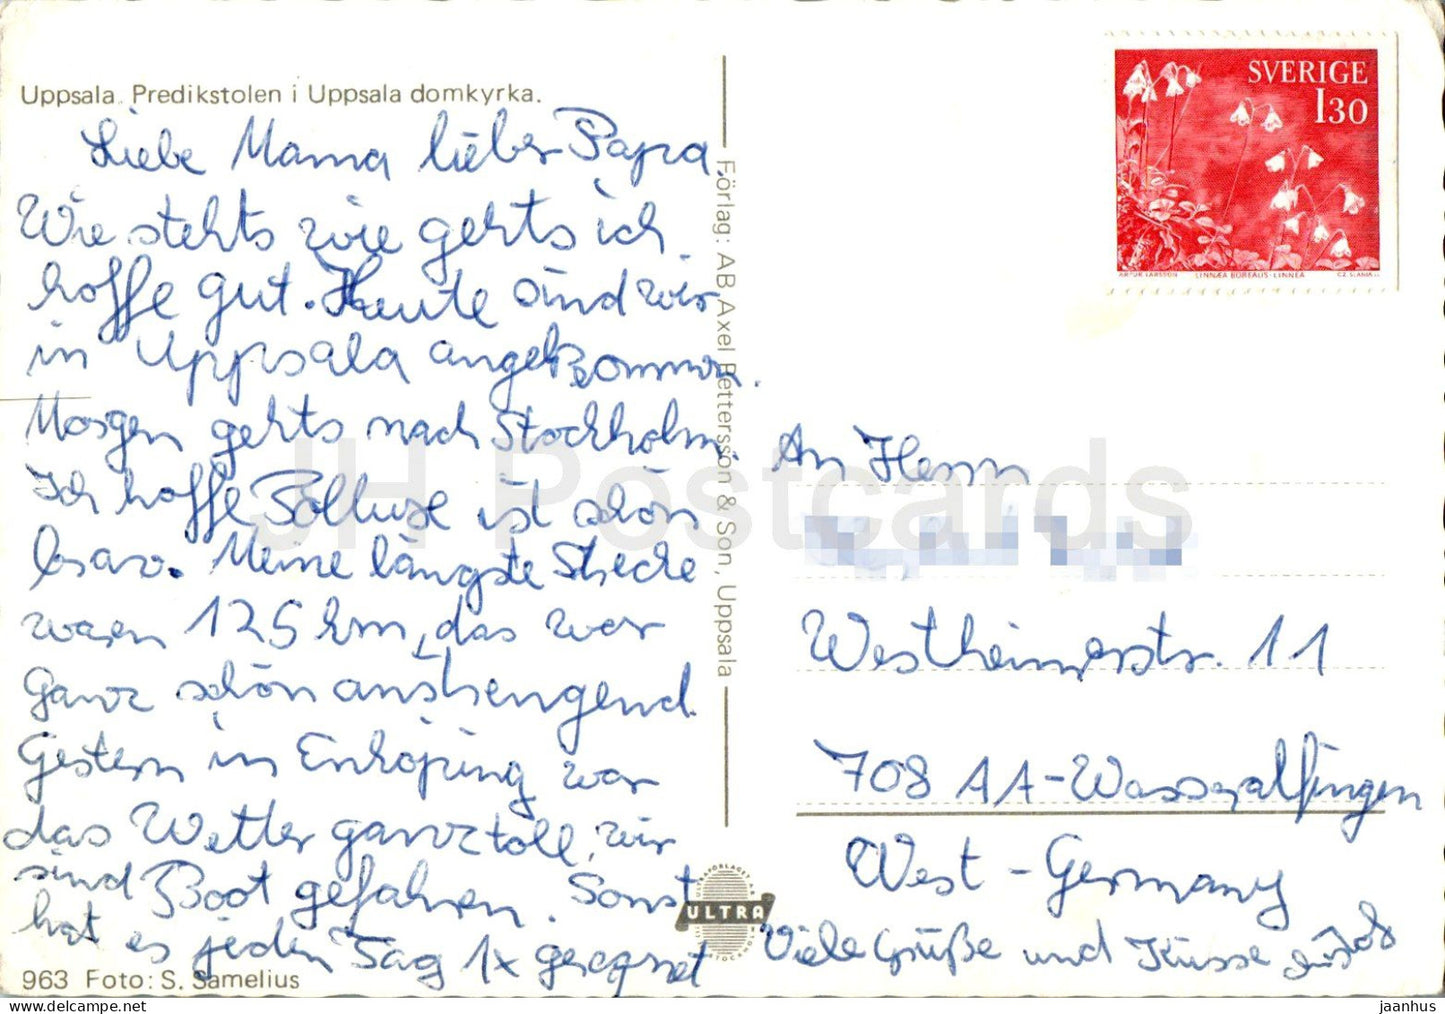 Uppsala. Predikstolen i Uppsala domkyrka.
Liebe Mama lieber Papa.
Wie stehts wie gehts ich
hoffe gut. Heute sind wir
in Uppsala angekommen.
Morgen gehts nach Stockholm.
Ich hoffe ist schön
brav. Meine längste Strecke
waren 125 km, das war
ganz schön anstrengend.
Gestern in Enköping war
das Wetter ganz toll, wir
sind Boot gefahren. Sonst
hat es jeden Tag 1x geregnet
963 Foto: S. Samelius
Förlag: AB Axel Pettersson & Son, Uppsala
ULTRA
SVERIGE
130
ARTUR LARSSON LINNÆA BOREALIS · LINNEA CZ. SLANIA SC.
An Herrn
Westheimerstr. 11
708 AA-Wasseralfingen
West-Germany
Viele Grüße und Küsse
JH Postcards
https://www.jhpostcards.com
jaanhus